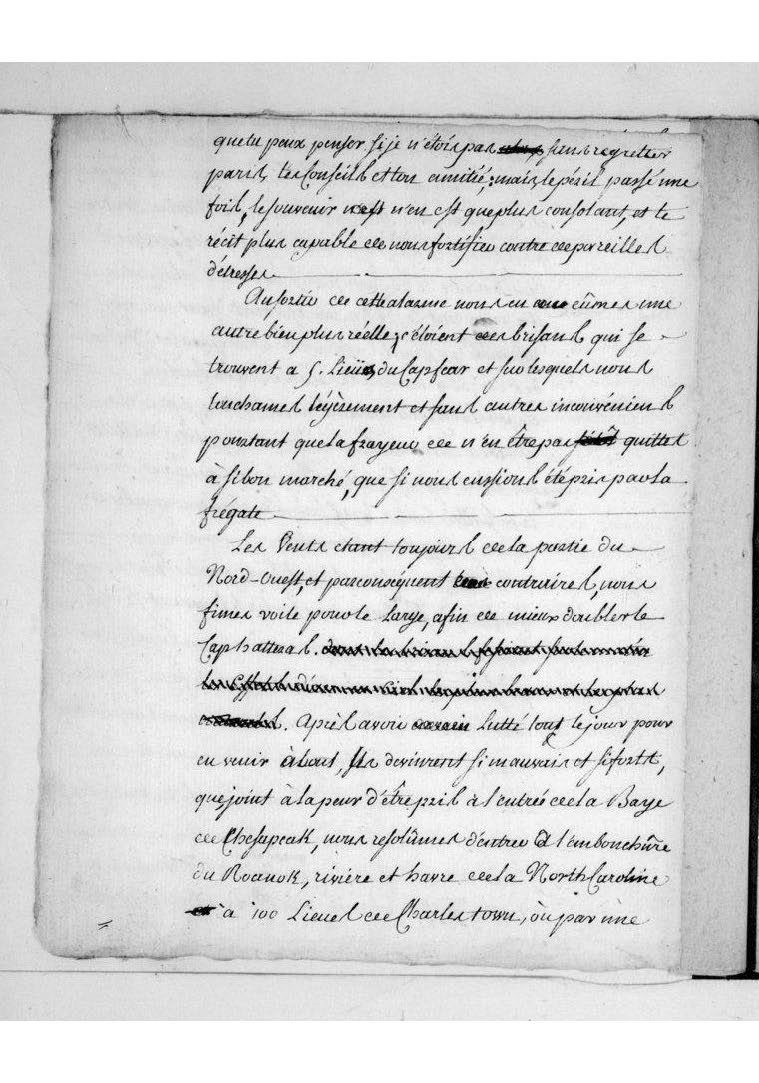 que tu peux penser si je n'étois pas sans regretter
paris, tes Conseils et ton amitié; mais le péril passé une
fois, le souvenir n'en est que plus consolant, et le
récit plus capable de nous fortifier contre de pareilles
détresses
Au sortir de cette alarme nous en eûmes une
autre bien plus réelle; c'étoient des brisans qui se
trouvent a 5. Lieües du Capfear et sur lesquels nous
touchames légèrement et sans autres inconvéniens
pourtant que la frayeur de n'en être pas quittes
à si bon marché, que si nous eussions été pris par la
frégate
Les Vents etant toujours de la partie du
Nord-Ouest, et par conséquent contraires, nous
fimes voile pour le large, afin de mieux doubler le
Cap hatteras.
Après avoir lutté tout le jour pour
en venir à bout, Ils devinrent si mauvais et si forts,
que, joint à la peur d'être pris à l'entrée de la Baye
de Chesapeak, nous resolûmes d'entrer à l'embouchûre
du Roanok, rivière et havre de la North Caroline
à 100 Lieues de Charlestown, où par une